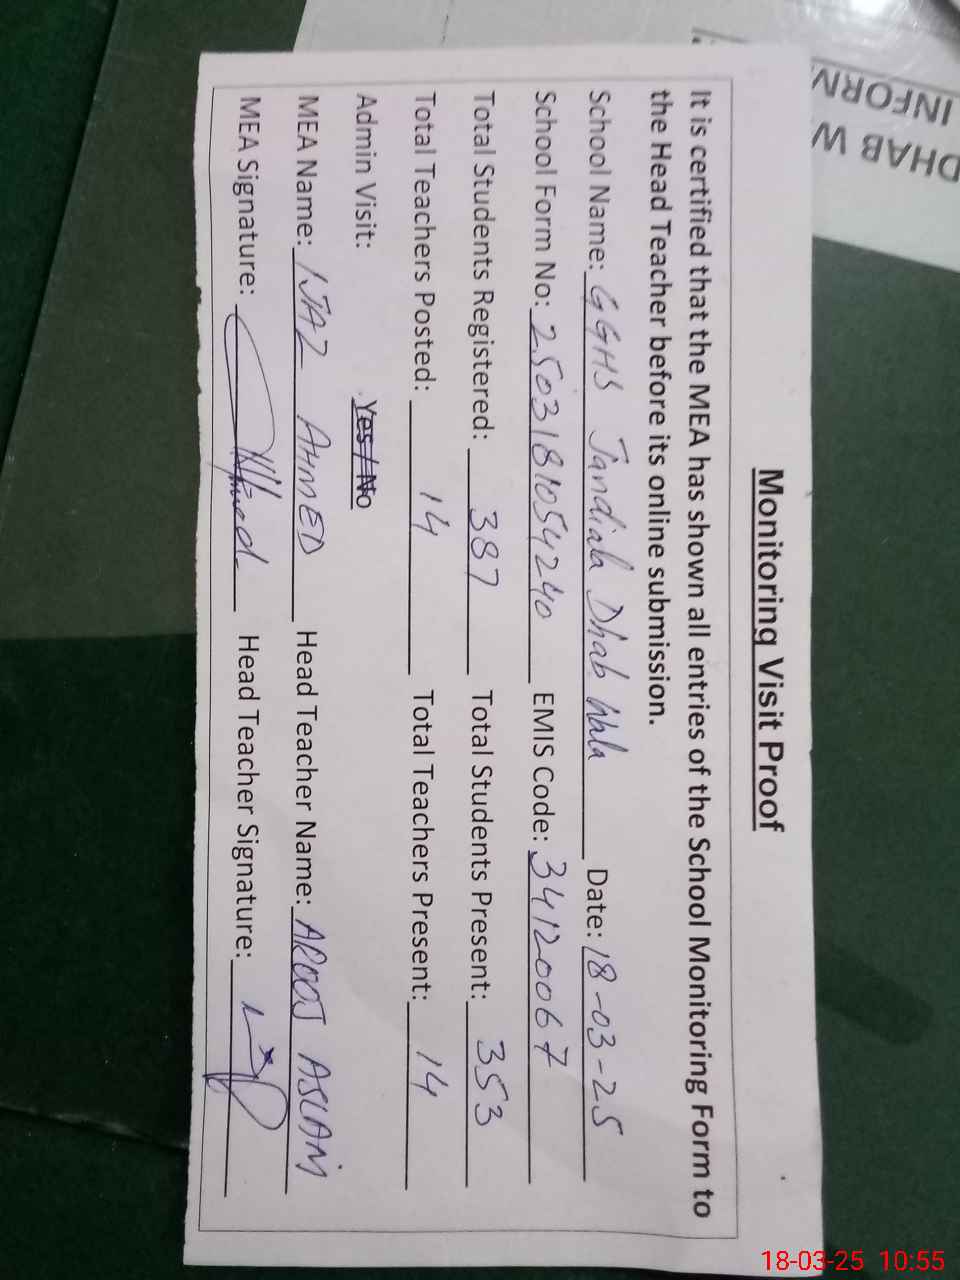 Monitoring Visit Proof
It is certified that the MEA has shown all entries of the School Monitoring Form to
the Head Teacher before its online submission.
School Name: GGHS Jandiala Dhab Wala Date: 18-03-25
School Form No: 2503181054240 EMIS Code: 34120067
Total Students Registered: 387 Total Students Present: 353
Total Teachers Posted: 14 Total Teachers Present: 14
Admin Visit: Yes / No
MEA Name: IJAZ AHMED Head Teacher Name: AROOJ ASLAM
MEA Signature: Head Teacher Signature:
DHAB W
INFORM
18-03-25 10:55